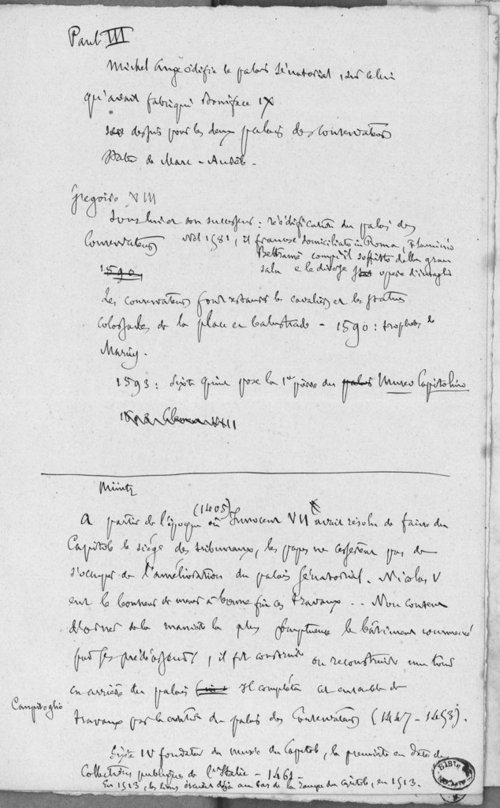 Paul III
Michel Ange édifie le palais Sénatorial, sur celui
qu'avait fabriqué Boniface IX
dessins pour les deux palais des Conservateurs
Statue de Marc-Aurèle.
Gregoire XIII
Sous lui et son successeur : réédification du palais des
Conservateurs Nel 1581, il francese domiciliato in Roma, Flaminio
Beltrame compì il soffitto della gran
1590 sala e le diverse opere d'intaglio
Les conservateurs font restaurer les cavaliers et les statues
colossales de la place et balustrade - 1590 : trophées de
Marius.
1593 : Sixte Quint pose la 1e pierre du palais Museo Capitolino
Müntz
A partir de l'époque où (1405) Innocent VII avait résolu de faire du
Capitole le siège des tribunaux, les papes ne cessèrent pas de
s'occuper de l'amélioration du palais Sénatorial. Nicolas V
eut le bonheur de mener à bonne fin ces travaux... Non content
d'orner de la manière la plus somptueuse le bâtiment commencé
par ses prédécesseurs, il fit construire ou reconstruire une tour
en arrière du palais Il compléta cet ensemble de
Campidoglio
travaux par la création du palais des Conservateurs (1447-1453).
Sixte IV fondateur du musée du Capitole, la première en date des
Collections publiques de l'Italie - 1461
En 1513, les lions étaient déjà au bas de la rampe du capitole, en 1513.